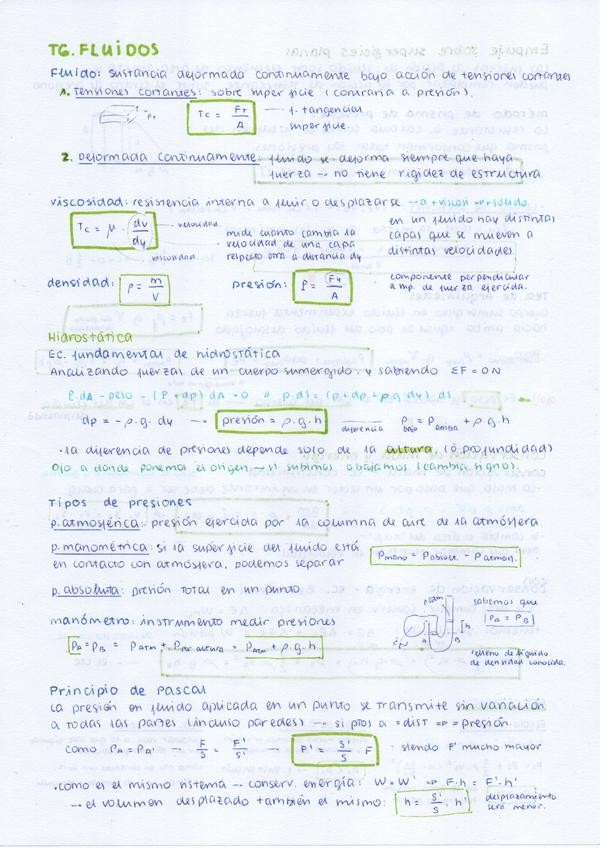 T6. FLUIDOS
Fluido: sustancia deformada continuamente bajo acción de tensiones cortantes
1. Tensiones cortantes: sobre superficie (contraria a presión).
Fτ
Tc = Fτ / A
f. tangencial
superficie
2. Deformada continuamente: fluido se deforma siempre que haya
fuerza → no tiene rigidez de estructura.
viscosidad: resistencia interna a fluir o desplazarse → a + viscosi → + sólido
Tc = μ · dv/dy
velocidad
viscosidad
mide cuanto cambia la
velocidad de una capa
respecto otra a distancia dy
en un fluido hay distintas
capas que se mueven a
distintas velocidades
densidad: ρ = m/V
presión: P = F⊥/A
componente perpendicular
a mp. de fuerza ejercida.
Hidrostática
Ec. fundamental de hidrostática
Analizando fuerzas de un cuerpo sumergido. y sabiendo ΣF = 0 N
P.dA - peso - (P + dp) dA = 0 // p.ds = (p + dp + ρ.g.dy) ds
dp = - ρ. g. dy → presión = ρ. g. h
diferencia
P bajo = P arriba + ρ. g. h
· la diferencia de presiones depende solo de la altura. (o profundidad)
Ojo a donde ponemos el origen → si subimos o bajamos (cambia signo).
Tipos de presiones
p. atmosférica: presión ejercida por la columna de aire de la atmósfera.
p. manométrica: si la superficie del fluido está
en contacto con atmósfera, podemos separar
Pmano = Pabsolt. - Patmosf.
p. absoluta: presión total en un punto
manómetro: instrumento medir presiones
PA = PB = Patm + Ppor altura = Patm + ρ. g. h
Patm
h
A
B
sabemos que
PA = PB
relleno de líquido
de densidad conocida.
Principio de Pascal
La presión en fluido aplicada en un punto se transmite sin variación
a todas las partes (incluso paredes) → si ptos a = dist ⇒ = presión
como PA = PA' → F/S = F'/S' → F' = S'/S · F : siendo F' mucho mayor
· como es el mismo sistema → conserv. energía: W = W' ⇒ F·h = F'·h'
→ el volumen desplazado también el mismo: h = S'/S · h'
desplazamiento
será menor.